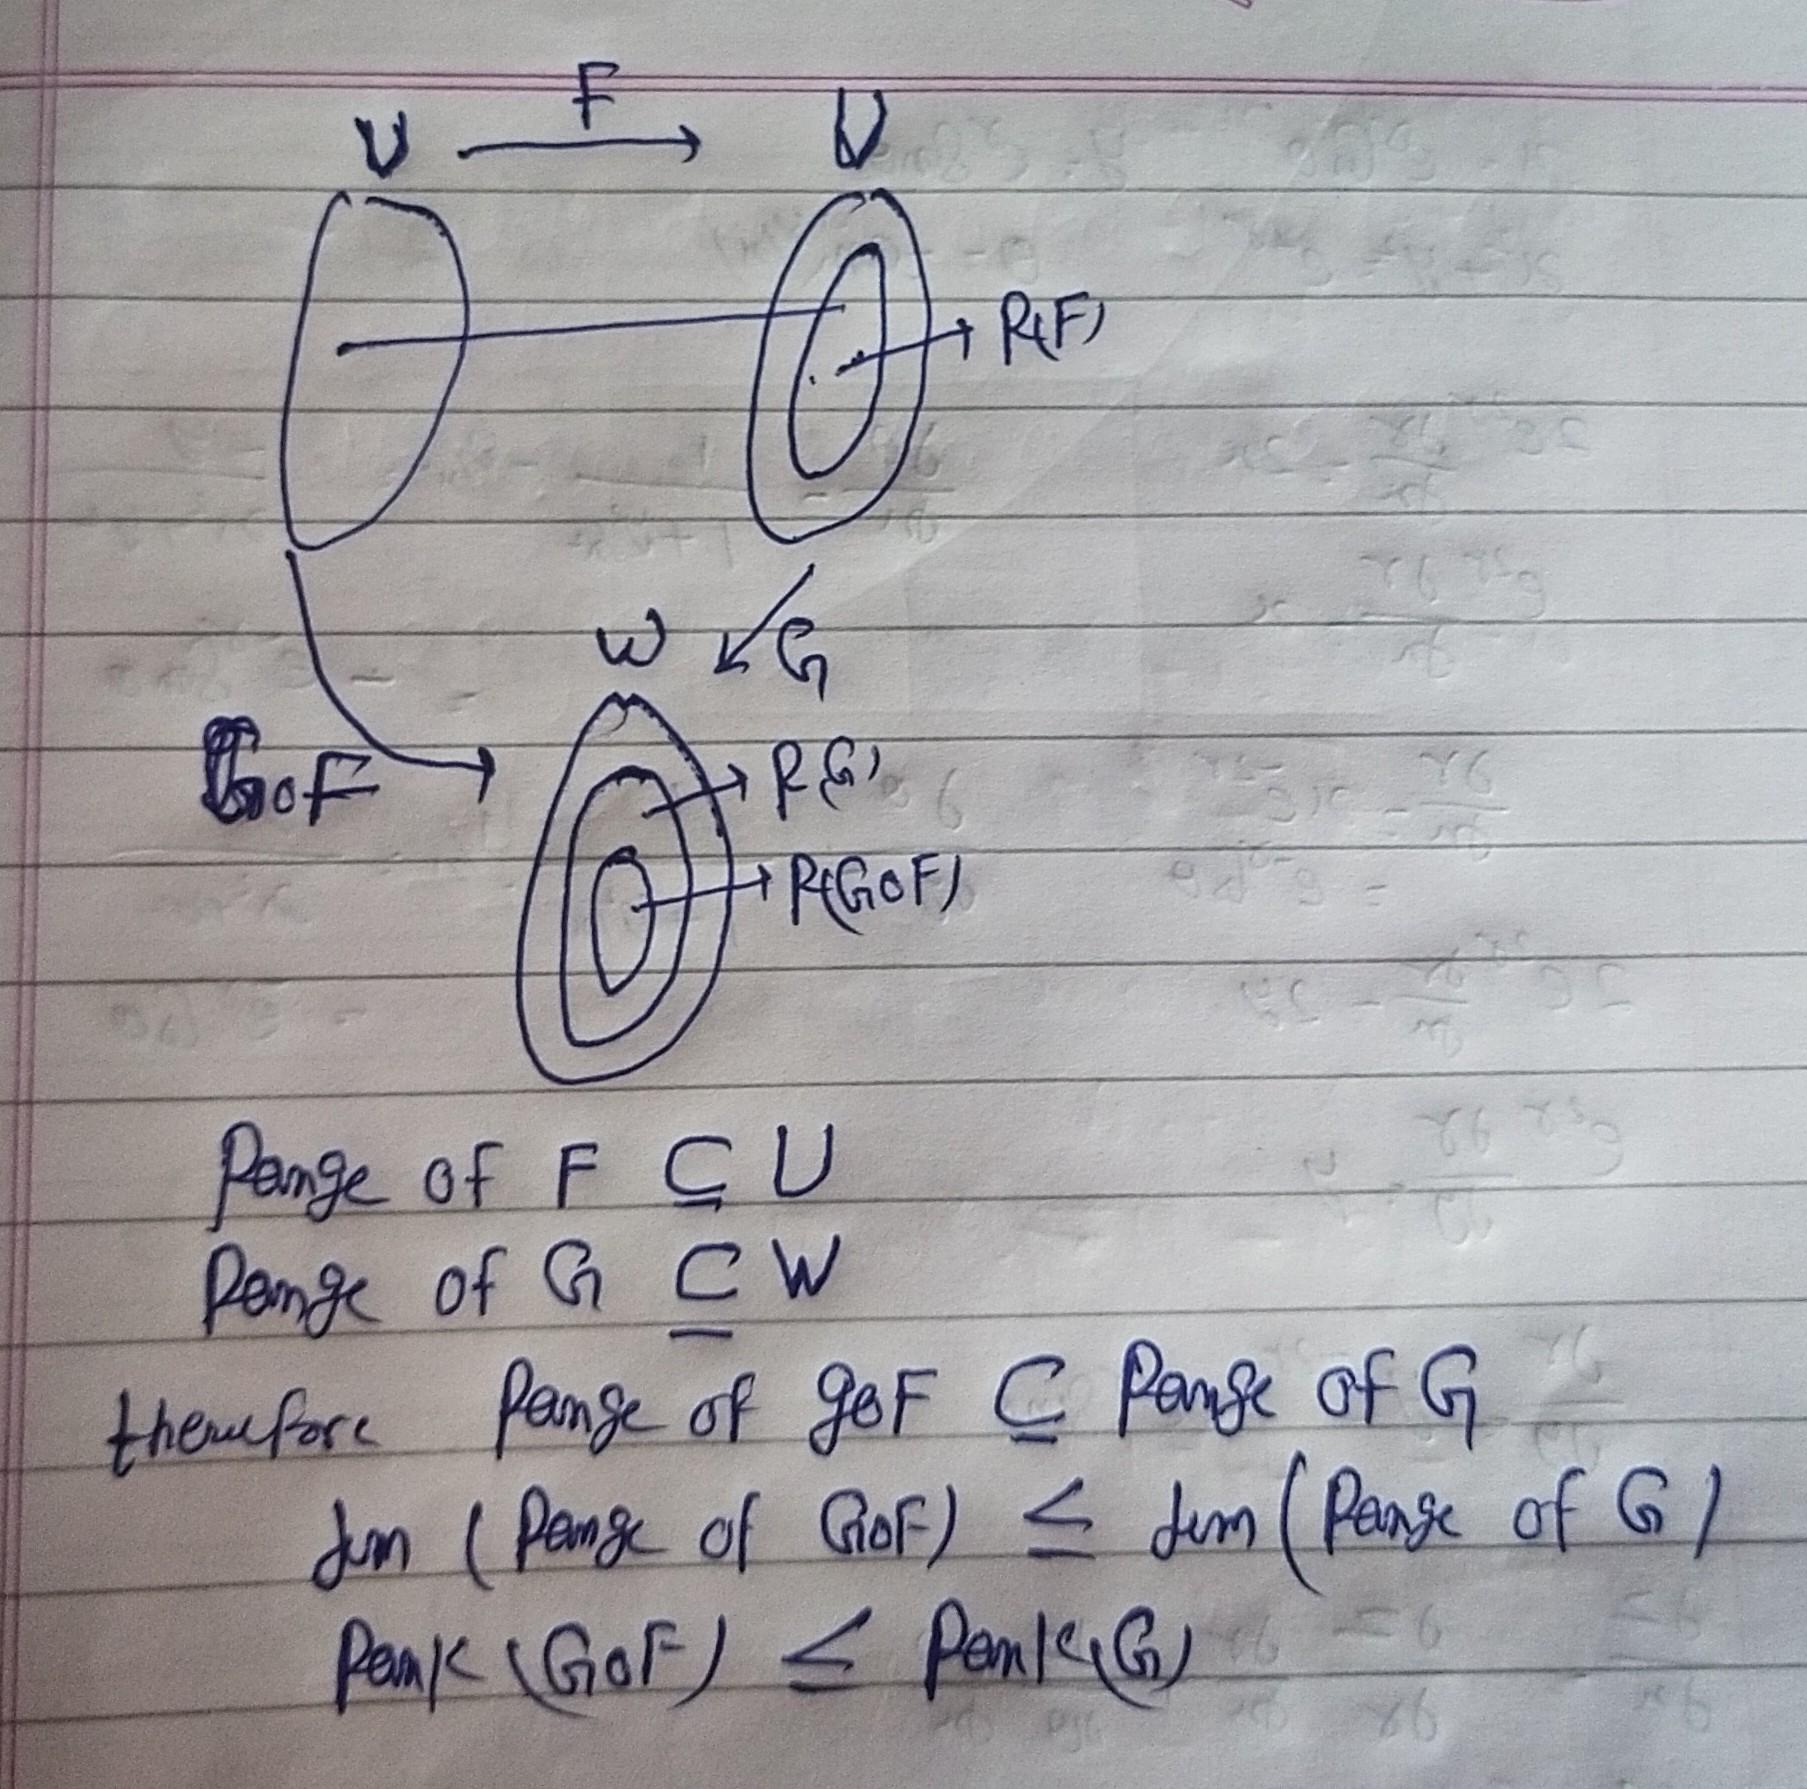 F
V U
R(F)
W G
GoF
R(G)
R(GoF)
Range of F ⊆ U
Range of G ⊆ W
therefore Range of goF ⊆ Range of G
dim ( Range of GoF) ≤ dim ( Range of G )
Rank (GoF) ≤ Rank(G)